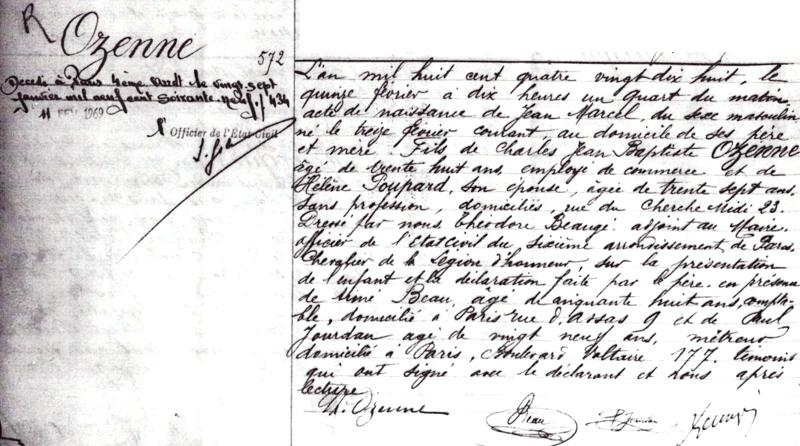 R
Ozenne
572
Décédé à Paris 4ème Arrdt le vingt sept
janvier mil neuf cent soixante neuf ./. 434
11 FEV 1969
L'Officier de l'État Civil
L'an mil huit cent quatre vingt dix huit, le
quinze février à dix heures un quart du matin,
acte de naissance de Jean Marcel, du sexe masculin
né le treize février courant, au domicile de ses père
et mère. Fils de Charles Jean Baptiste OZENNE
âgé de trente huit ans, employé de commerce et de
Hélène Poupard, son épouse, agée de trente sept ans,
sans profession, domiciliés, rue du Cherche Midi 23.
Dressé par nous Théodore Beaugé. adjoint au Maire,
officier de l'Etat civil du sixième arrondissement de Paris,
Chevalier de la Légion d'honneur, sur la présentation
de l'enfant et la déclaration faite par le père. en présence
de Aimé Beau, âgé de cinquante huit ans, compta-
ble, domicilié à Paris rue d'Assas 9 et de Paul
Jourdan agé de vingt neuf ans, métreur
domicilié à Paris, Boulevard Voltaire 177. témoins
qui ont signé avec le déclarant et nous après
lecture
Ozenne
Beau